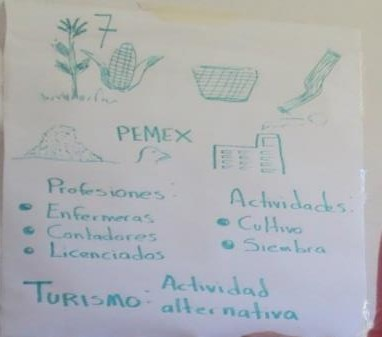 7
PEMEX
Profesiones:
• Enfermeras
• Contadores
• Licenciados
Actividades:
• Cultivo
• Siembra
TURISMO: Actividad
alternativa